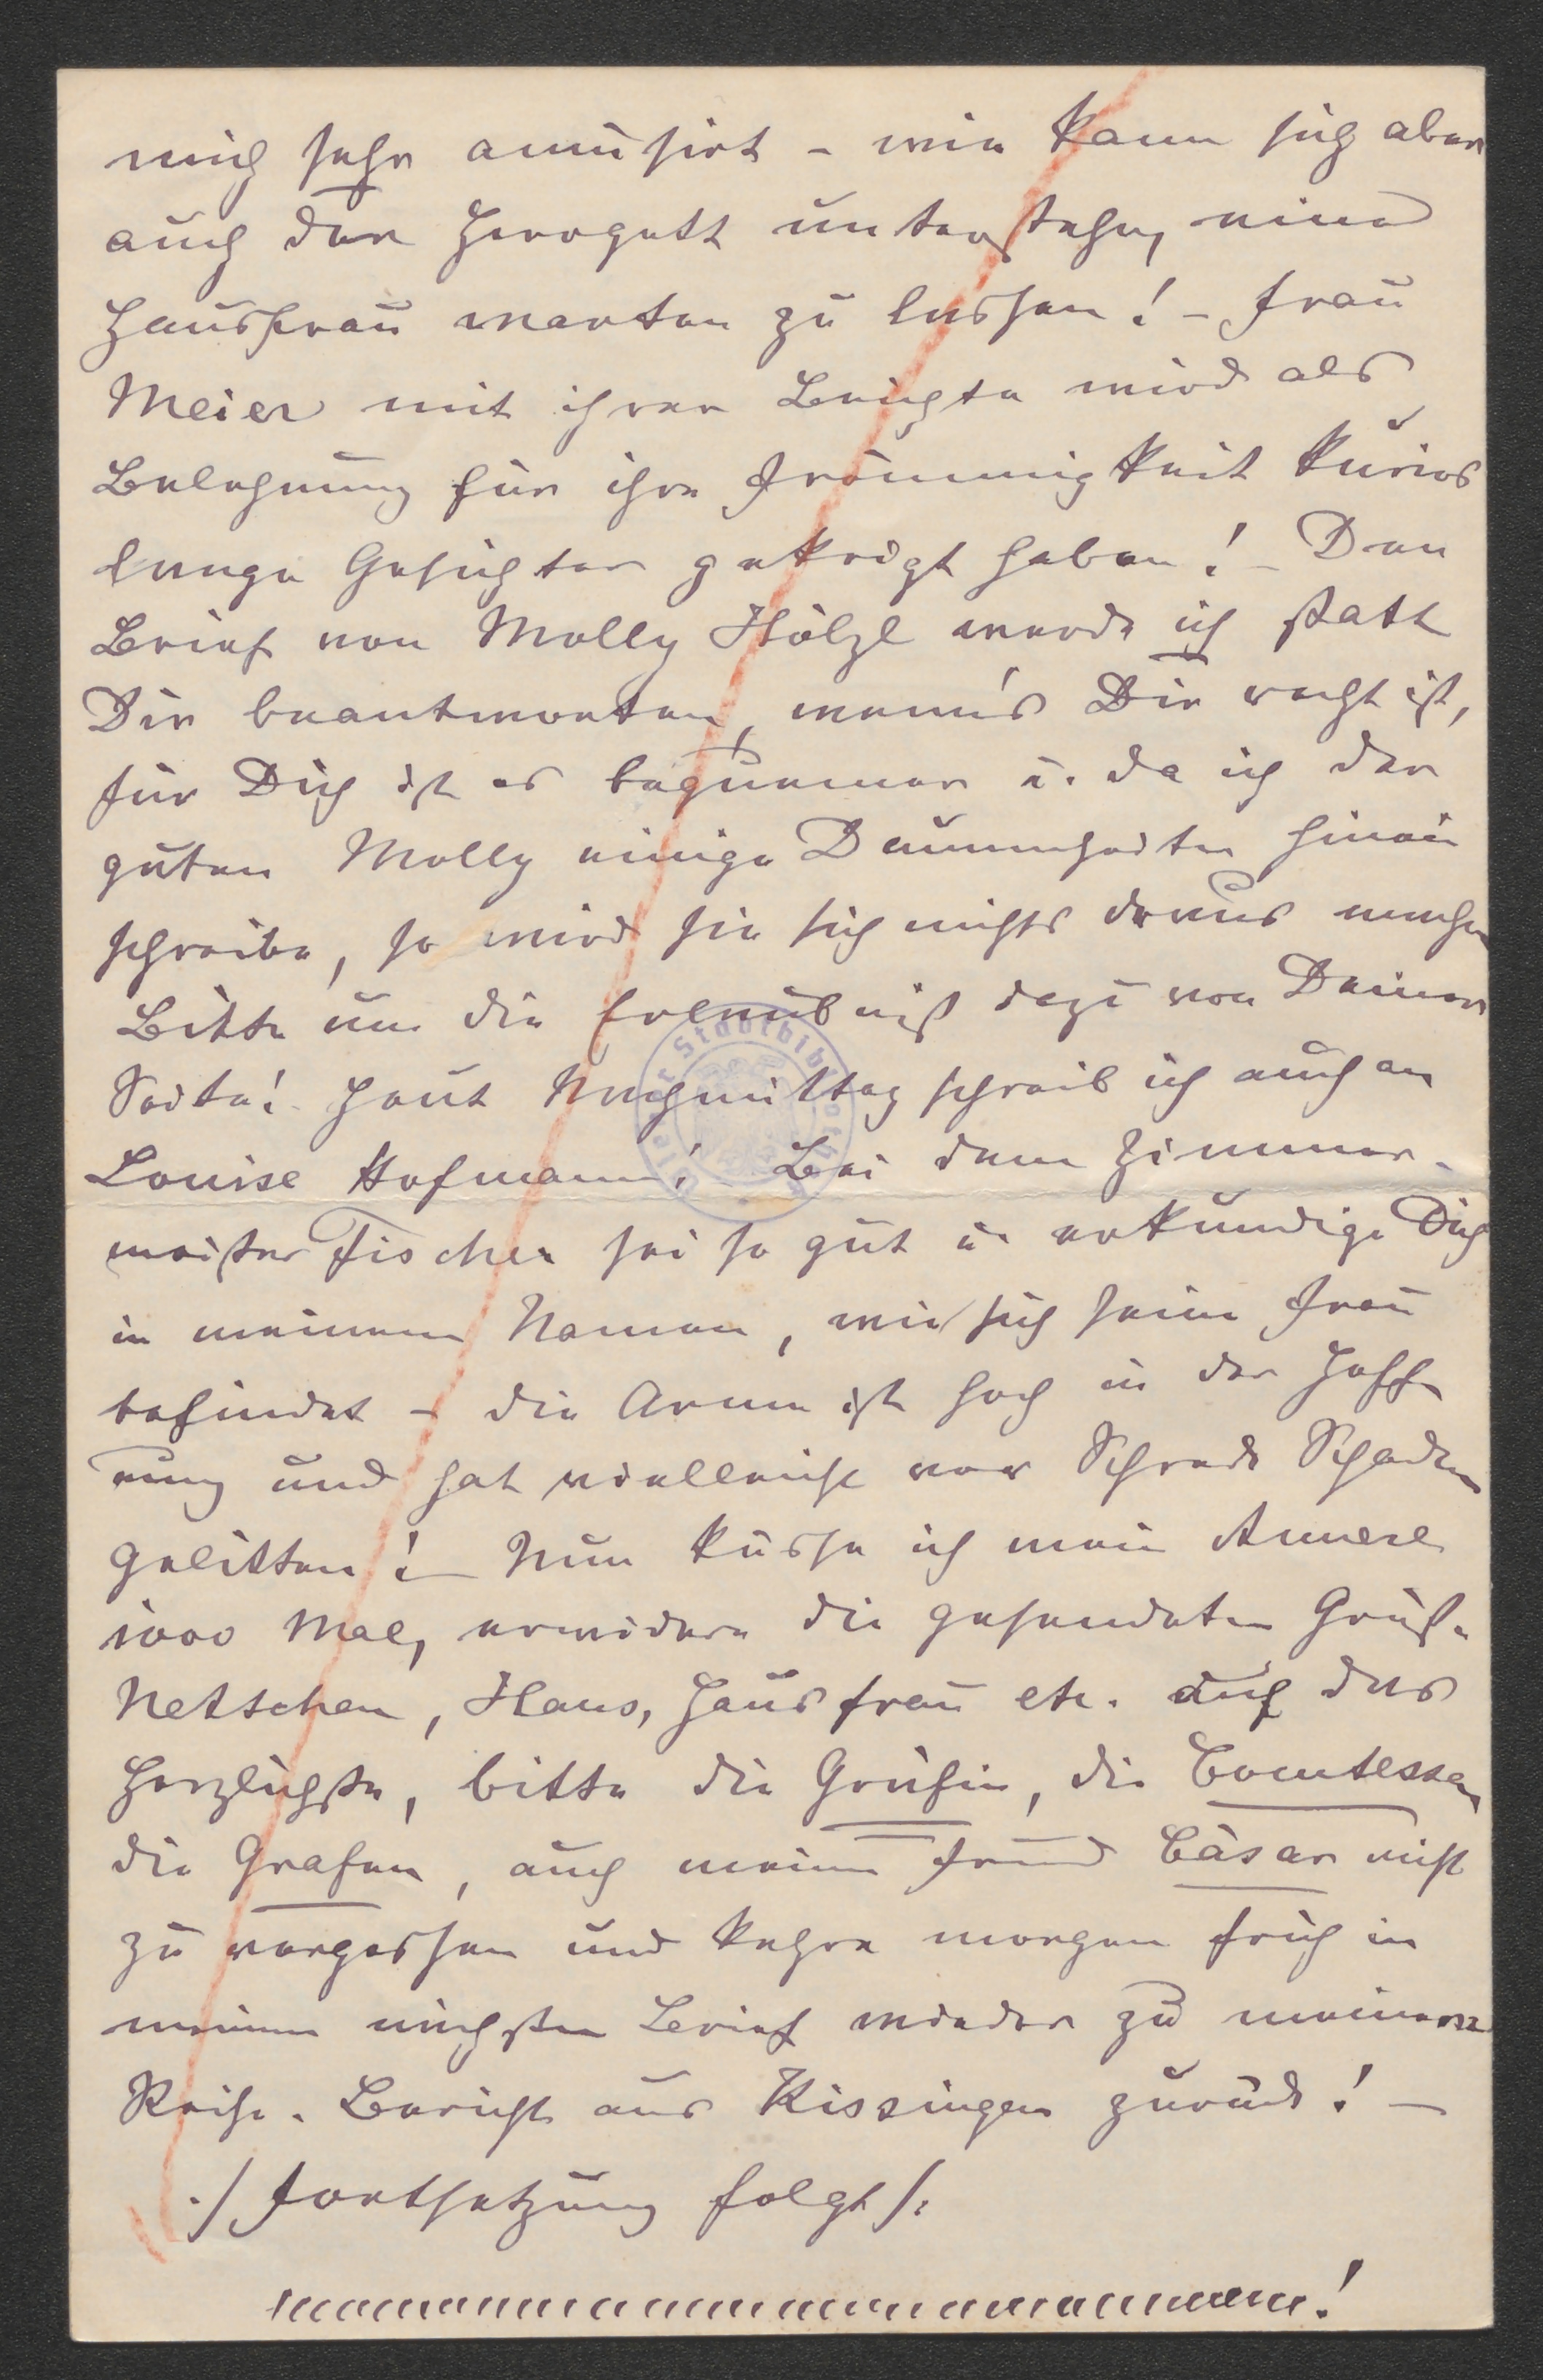 mich sehr amüsirt – wie kann sich aber
auch der Herrgott unterstehen, eine
Hausfrau warten zu lassen! – Frau
Meier mit ihrer Beichte wird als
Belohnung für ihre Frömmigkeit kurios
lange Gesichter gekrigt haben! – Den
Brief von Molly Hölzl werde ich statt
Dir beantworten, wenn's Dir recht ist,
für Dich ist es bequemer u. da ich der
guten Molly einige Dummheiten hinein
schreibe, so wird sie sich nichts draus machen
Bitte um die Erlaubniß dazu von Deiner
Seite! Heut Nachmittag schreib ich auch an
Louise Hofmann! Bei dem Zimmer-
meister Fischer sei so gut u. erkundige Dich
in meinem Namen, wie sich seine Frau
befindet – die Arme ist hoch in der Hoff-
nung und hat vielleicht vor Schreck Schaden
gelitten! – Nun küsse ich mein Annerl
1000 Mal, erwidere die gesendeten Grüße
Nettchen, Hans, Hausfrau etc. auf das
Herzlichste, bitte die Gräfin, die Comtessen
die Grafen, auch meinen Freund Cäsar nicht
zu vergessen und kehre morgen früh in
meinem nächsten Brief wieder zu meinem
Reise-Bericht aus Kissingen zurück! –
./ Fortsetzung folgt /.